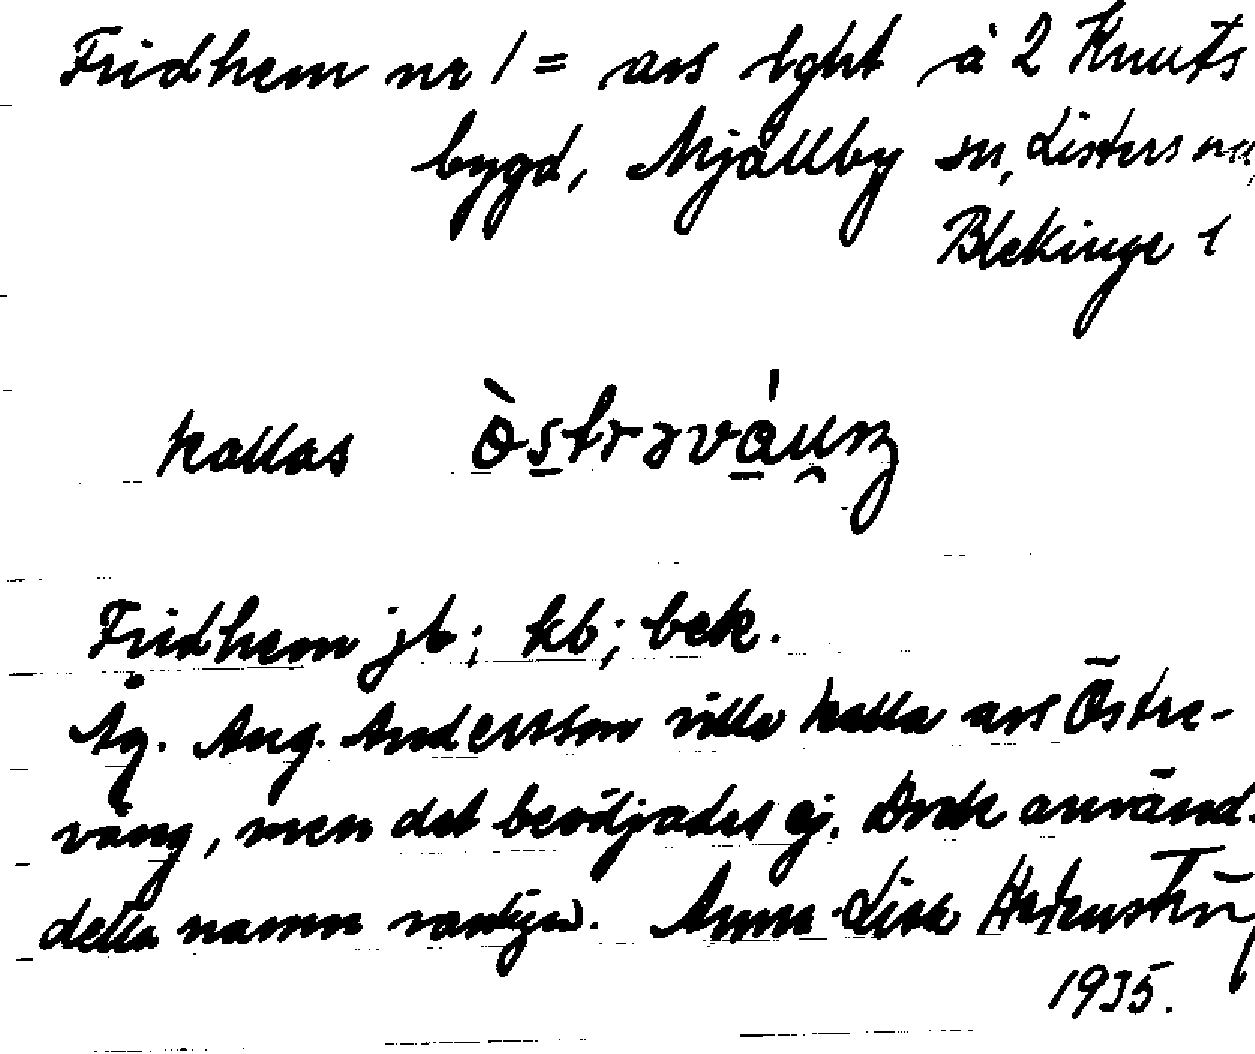 Fridhem nr 1 = avs lght å 2 Knuts
bygd, Mjällby sn, Listers hd,
Blekinge l
kallas òstrəváŋ
Fridhem jb; kb; bek.
Äg. Aug. Andersson ville kalla avs Östre-
väng, men det beviljades ej. Dock använd.
detta namn vanligen. Anna-Lisa Hedenström
1935.